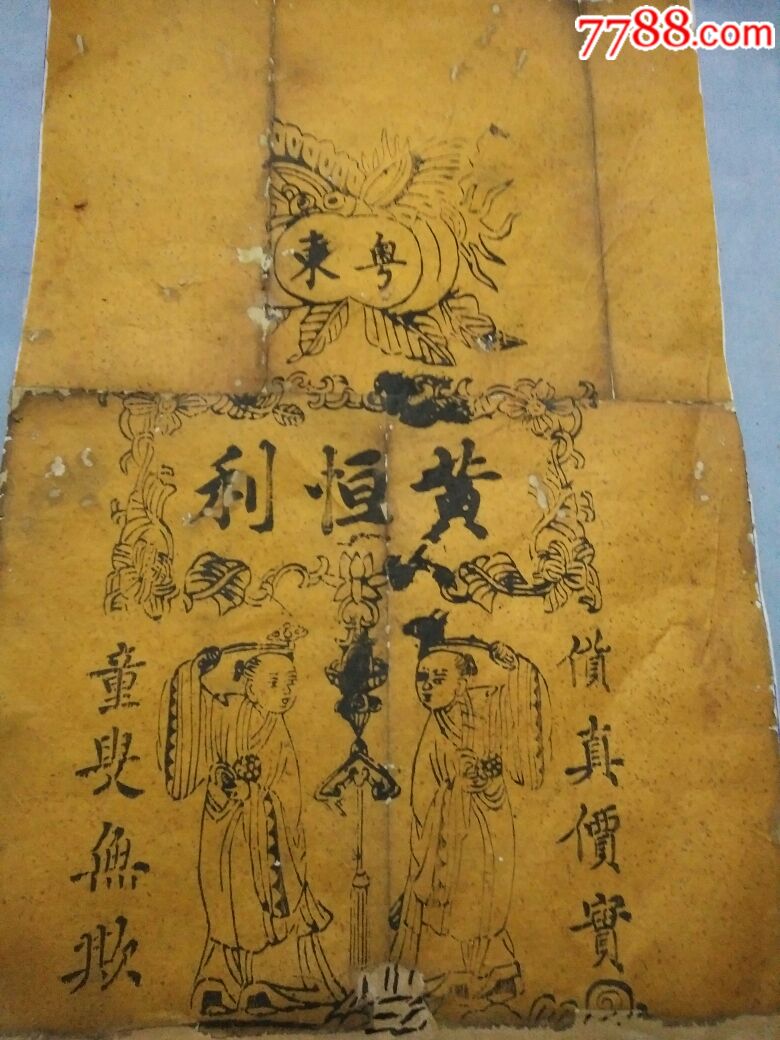 7788.com
粤東
黄恒利
貨真價實
童叟無欺